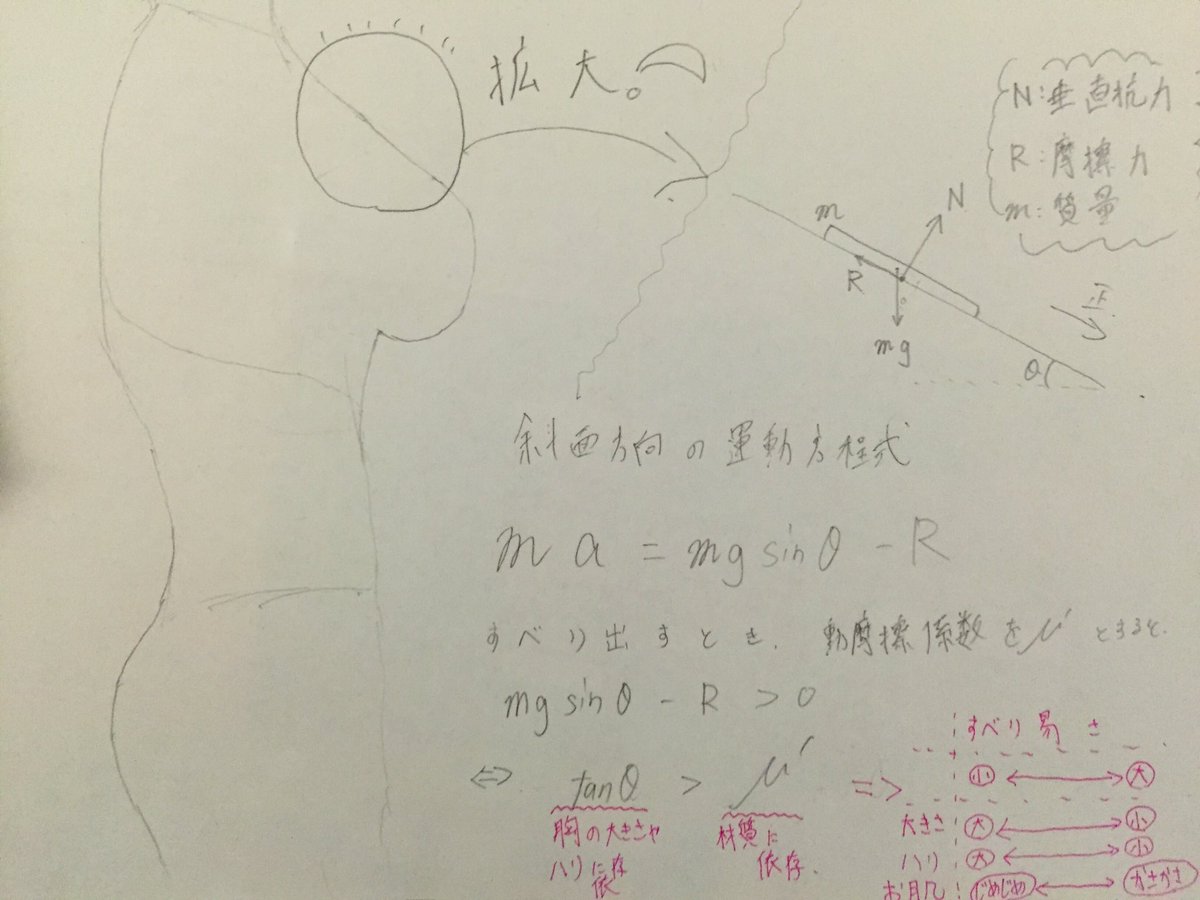 拡大。
N:垂直抗力
R:摩擦力
m:質量
m
N
R
mg
正
θ
斜面方向の運動方程式
ma = mg sinθ - R
すべり出すとき、動摩擦係数をμ'とすると、
mg sinθ - R > 0
⇔ tanθ > μ' ⇒
胸の大きさや
ハリに依存
材質に
依存.
すべり易さ
小 ↔ 大
大きさ: 大 ↔ 小
ハリ: 大 ↔ 小
お肌: じめじめ ↔ かさかさ